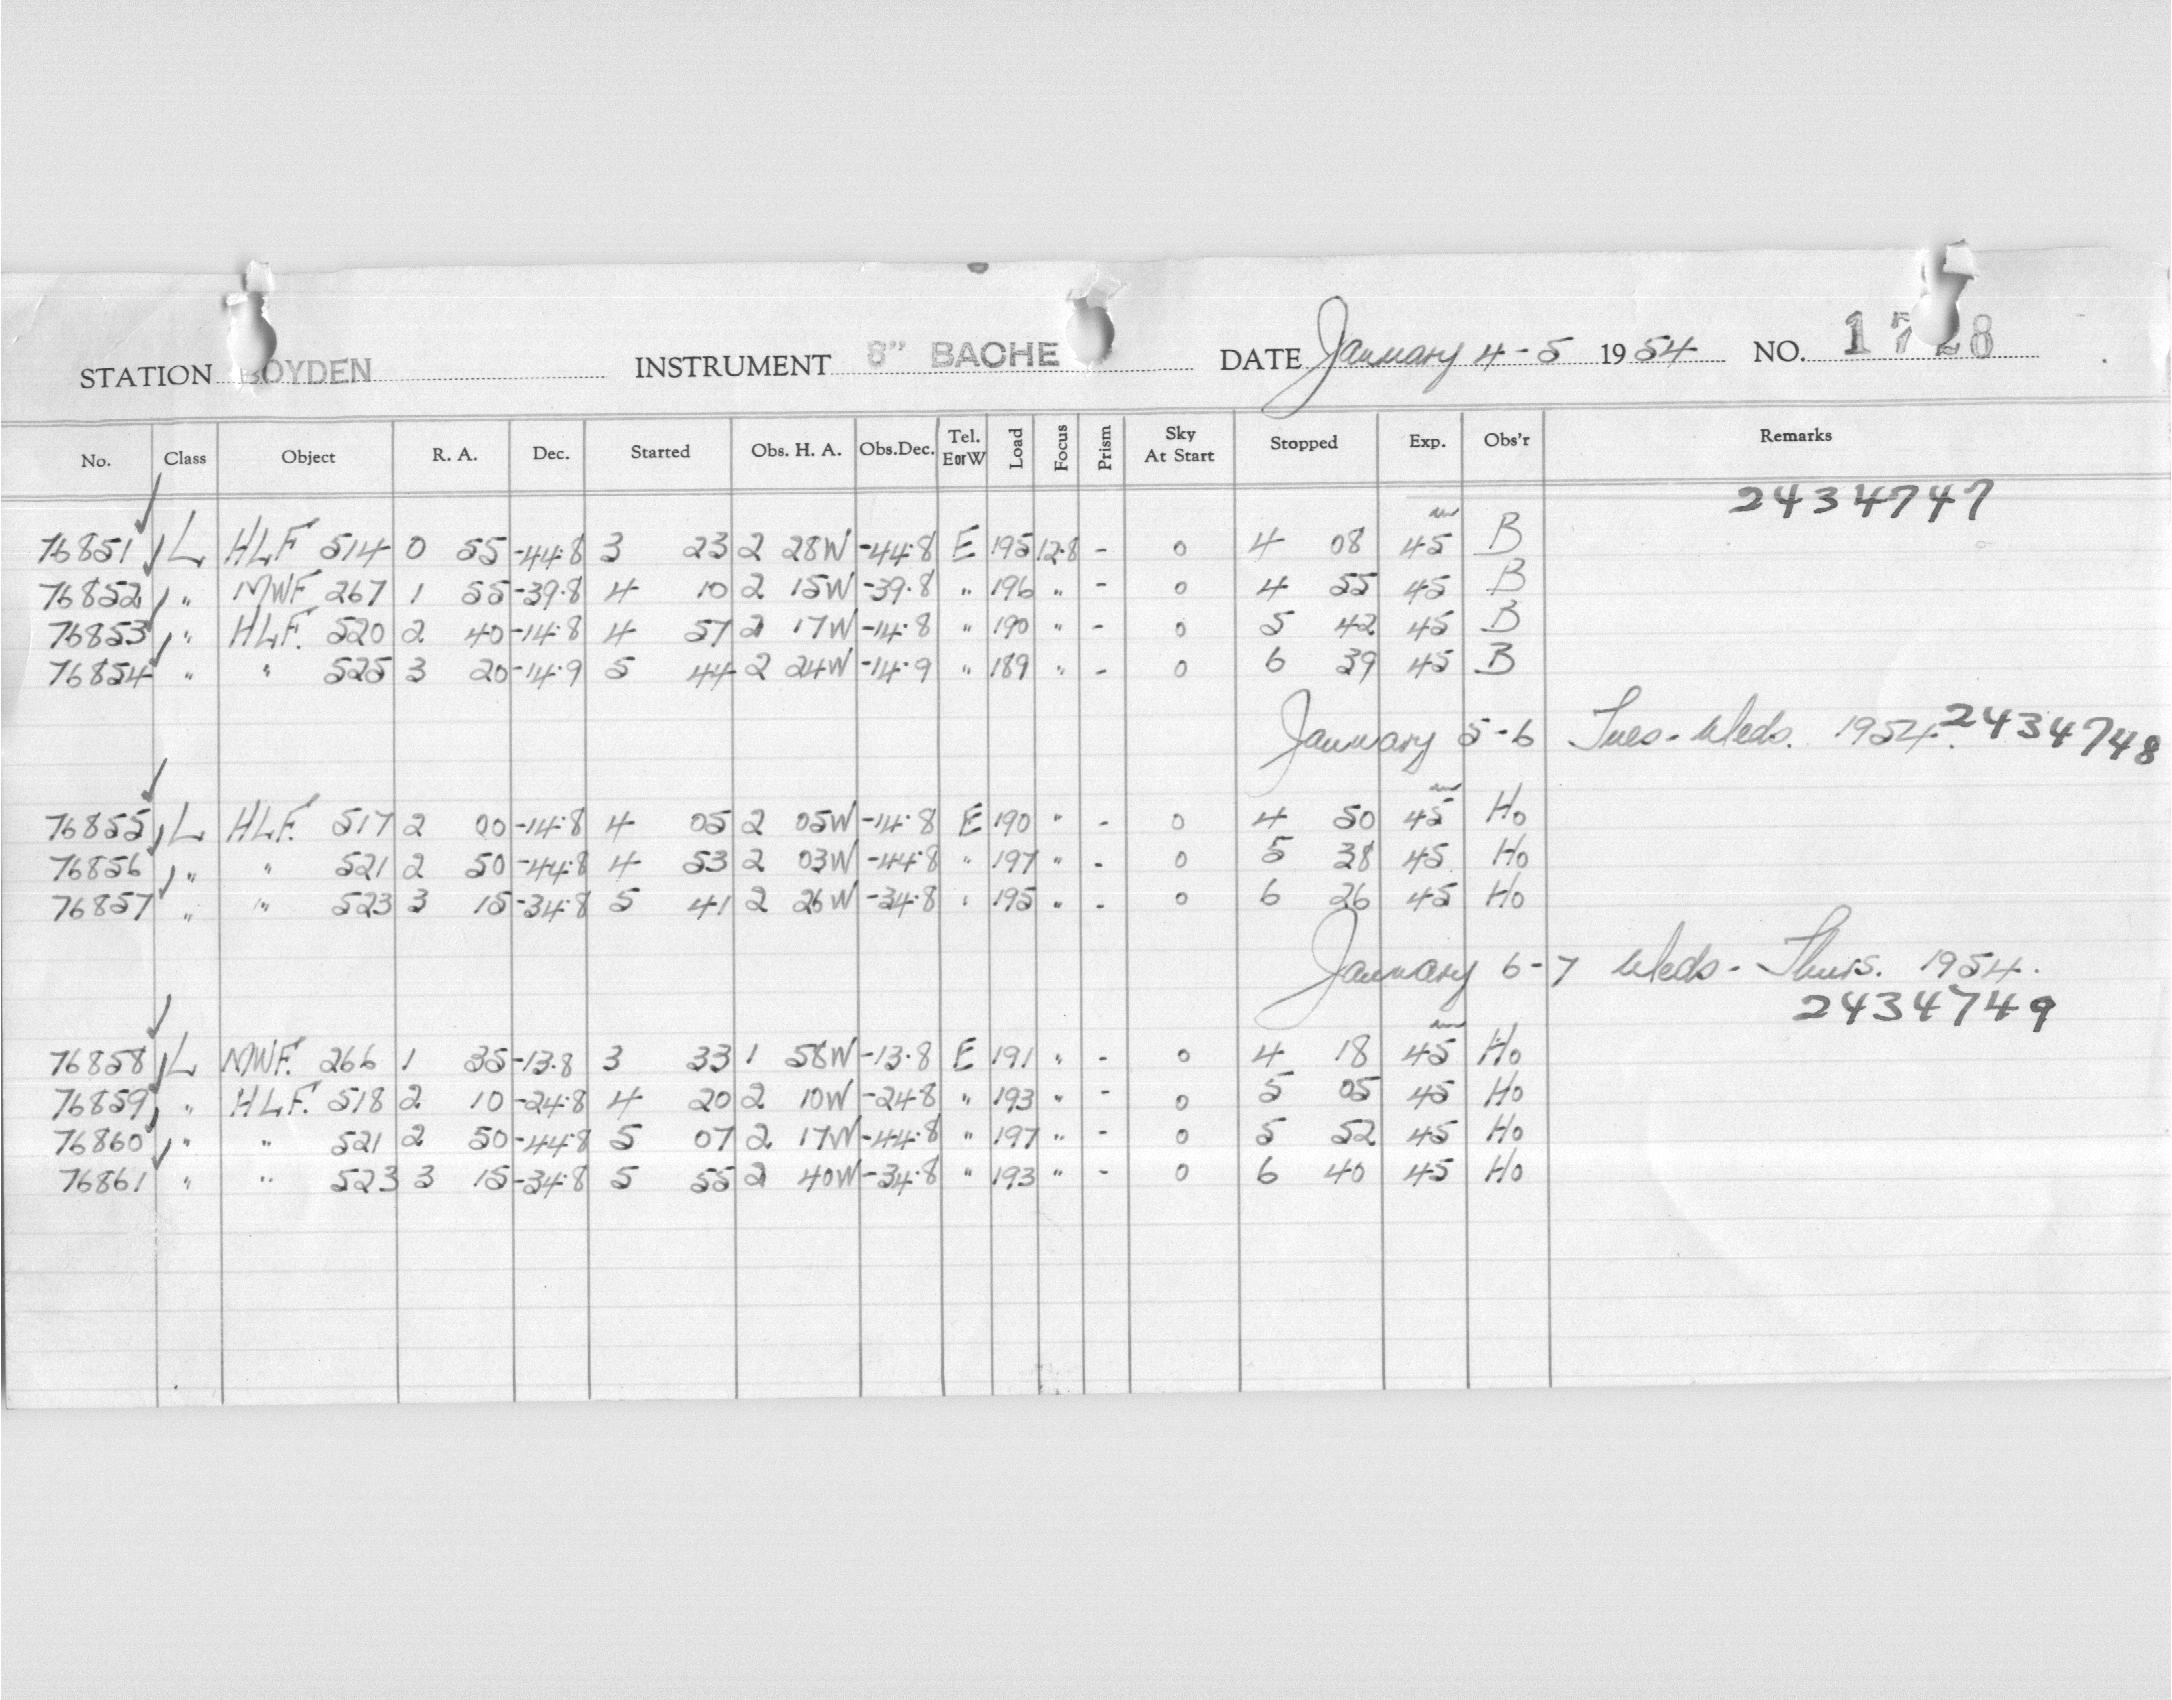 STATION BOYDEN INSTRUMENT 8" BACHE DATE January 4-5 1954 NO. 1728
No. Class Object R. A. Dec. Started Obs. H. A. Obs.Dec. Tel. EorW Load Focus Prism Sky At Start Stopped Exp. Obs'r Remarks
2434747
76851 L HLF 514 0 55 -44.8 3 23 2 28W -44.8 E 195 12.8 - 0 4 08 45 B
76852 " MWF 267 1 55 -39.8 4 10 2 15W -39.8 " 196 " - 0 4 55 45 B
76853 " HLF. 520 2 40 -14.8 4 57 2 17W -14.8 " 190 " - 0 5 42 45 B
76854 " " 525 3 20 -14.9 5 44 2 24W -14.9 " 189 " - 0 6 39 45 B
January 5-6 Tues-Weds. 1954. 2434748
76855 L HLF. 517 2 00 -14.8 4 05 2 05W -14.8 E 190 " - 0 4 50 45 Ho
76856 " " 521 2 50 -44.8 4 53 2 03W -44.8 " 197 " - 0 5 38 45 Ho
76857 " " 523 3 15 -34.8 5 41 2 26W -34.8 " 195 " - 0 6 26 45 Ho
January 6-7 Weds- Thurs. 1954.
2434749
76858 L MWF. 266 1 35 -13.8 3 33 1 58W -13.8 E 191 " - 0 4 18 45 Ho
76859 " HLF. 518 2 10 -24.8 4 20 2 10W -24.8 " 193 " - 0 5 05 45 Ho
76860 " " 521 2 50 -44.8 5 07 2 17W -44.8 " 197 " - 0 5 52 45 Ho
76861 " " 523 3 15 -34.8 5 55 2 40W -34.8 " 193 " - 0 6 40 45 Ho